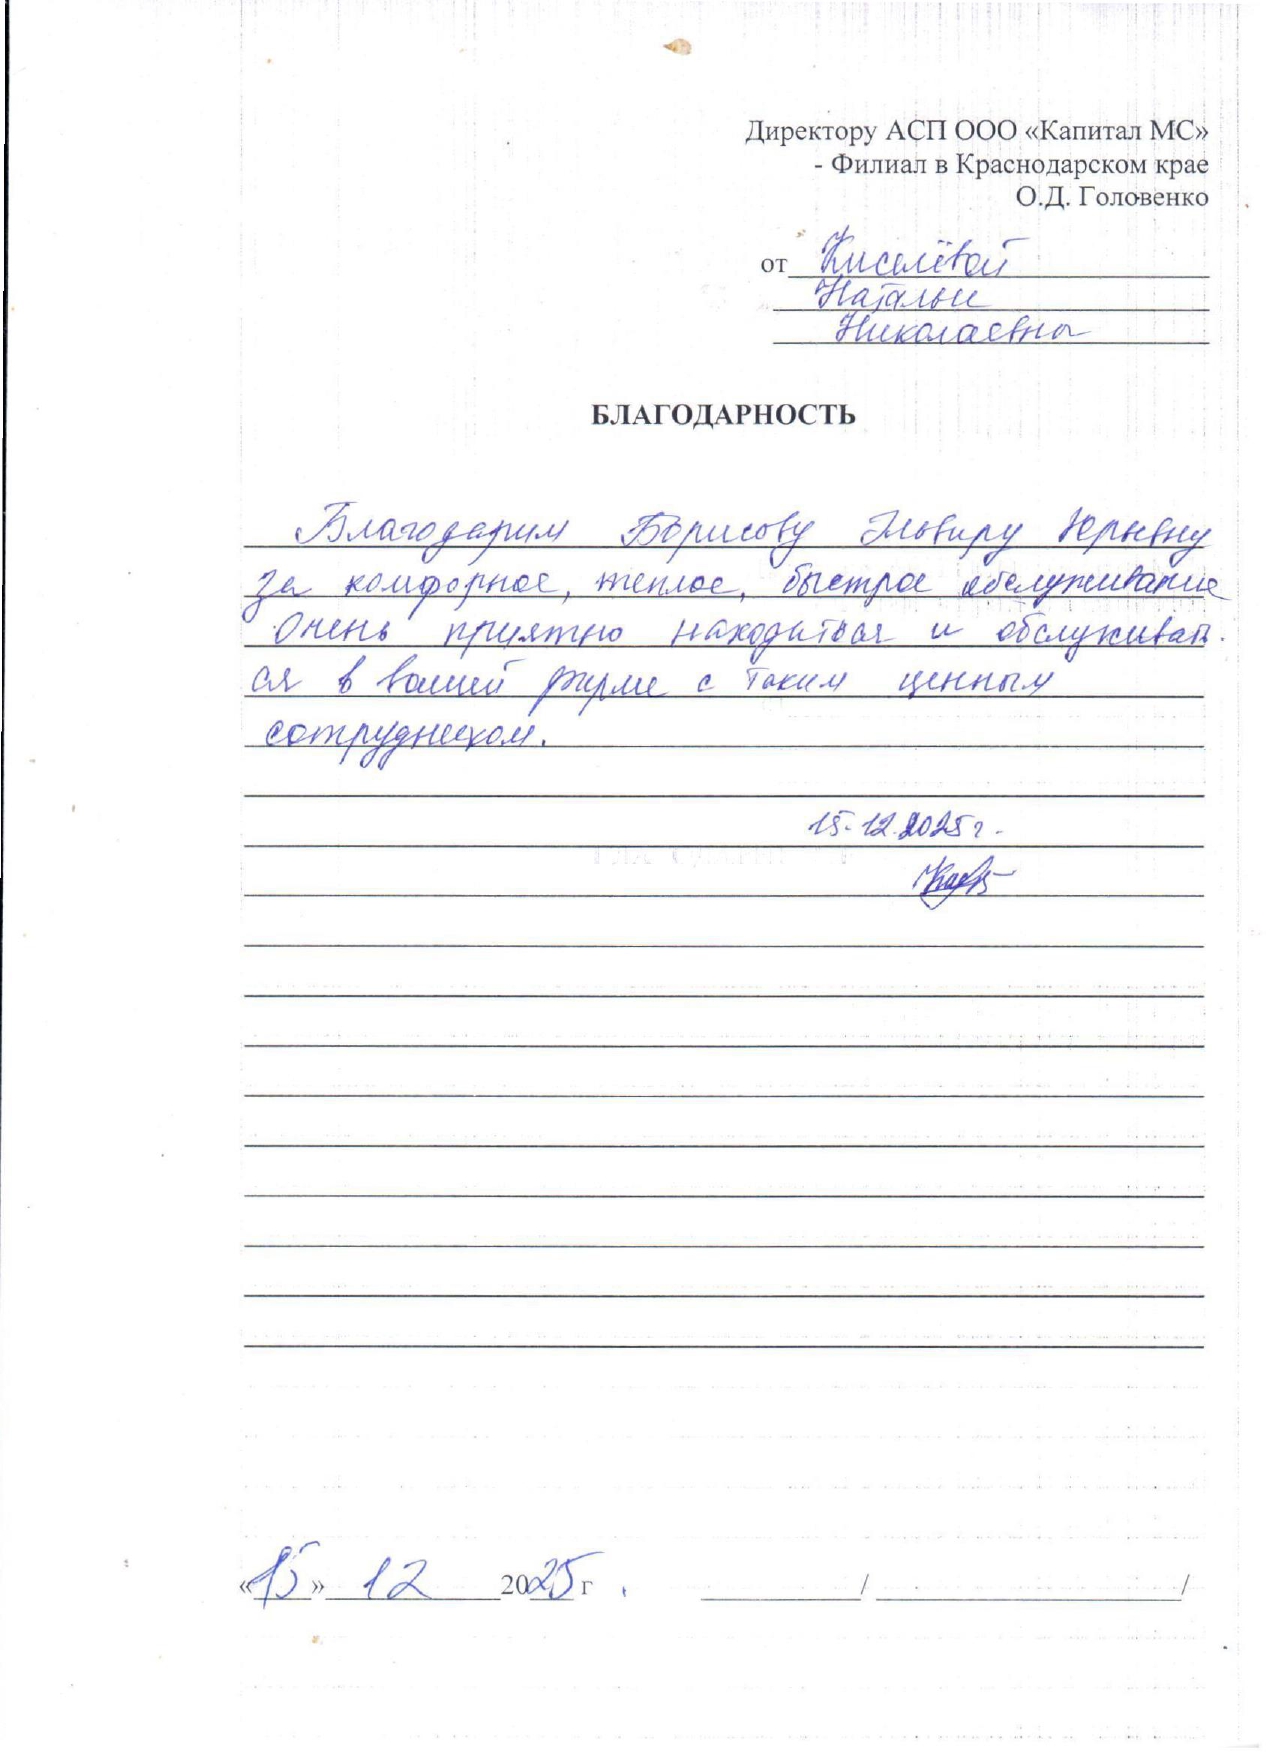 Директору АСП ООО «Капитал МС»
- Филиал в Краснодарском крае
О.Д. Головенко
от Киселёвой
Натальи
Николаевны
БЛАГОДАРНОСТЬ
Благодарим Борисову Эльвиру Юрьевну
за комфорное, теплое, быстрое обслуживание
Очень приятно находиться и обслуживат.
ся в вашей фирме с таким ценным
сотрудником.
15.12.2025г.
«15» 12 2025 г. / /